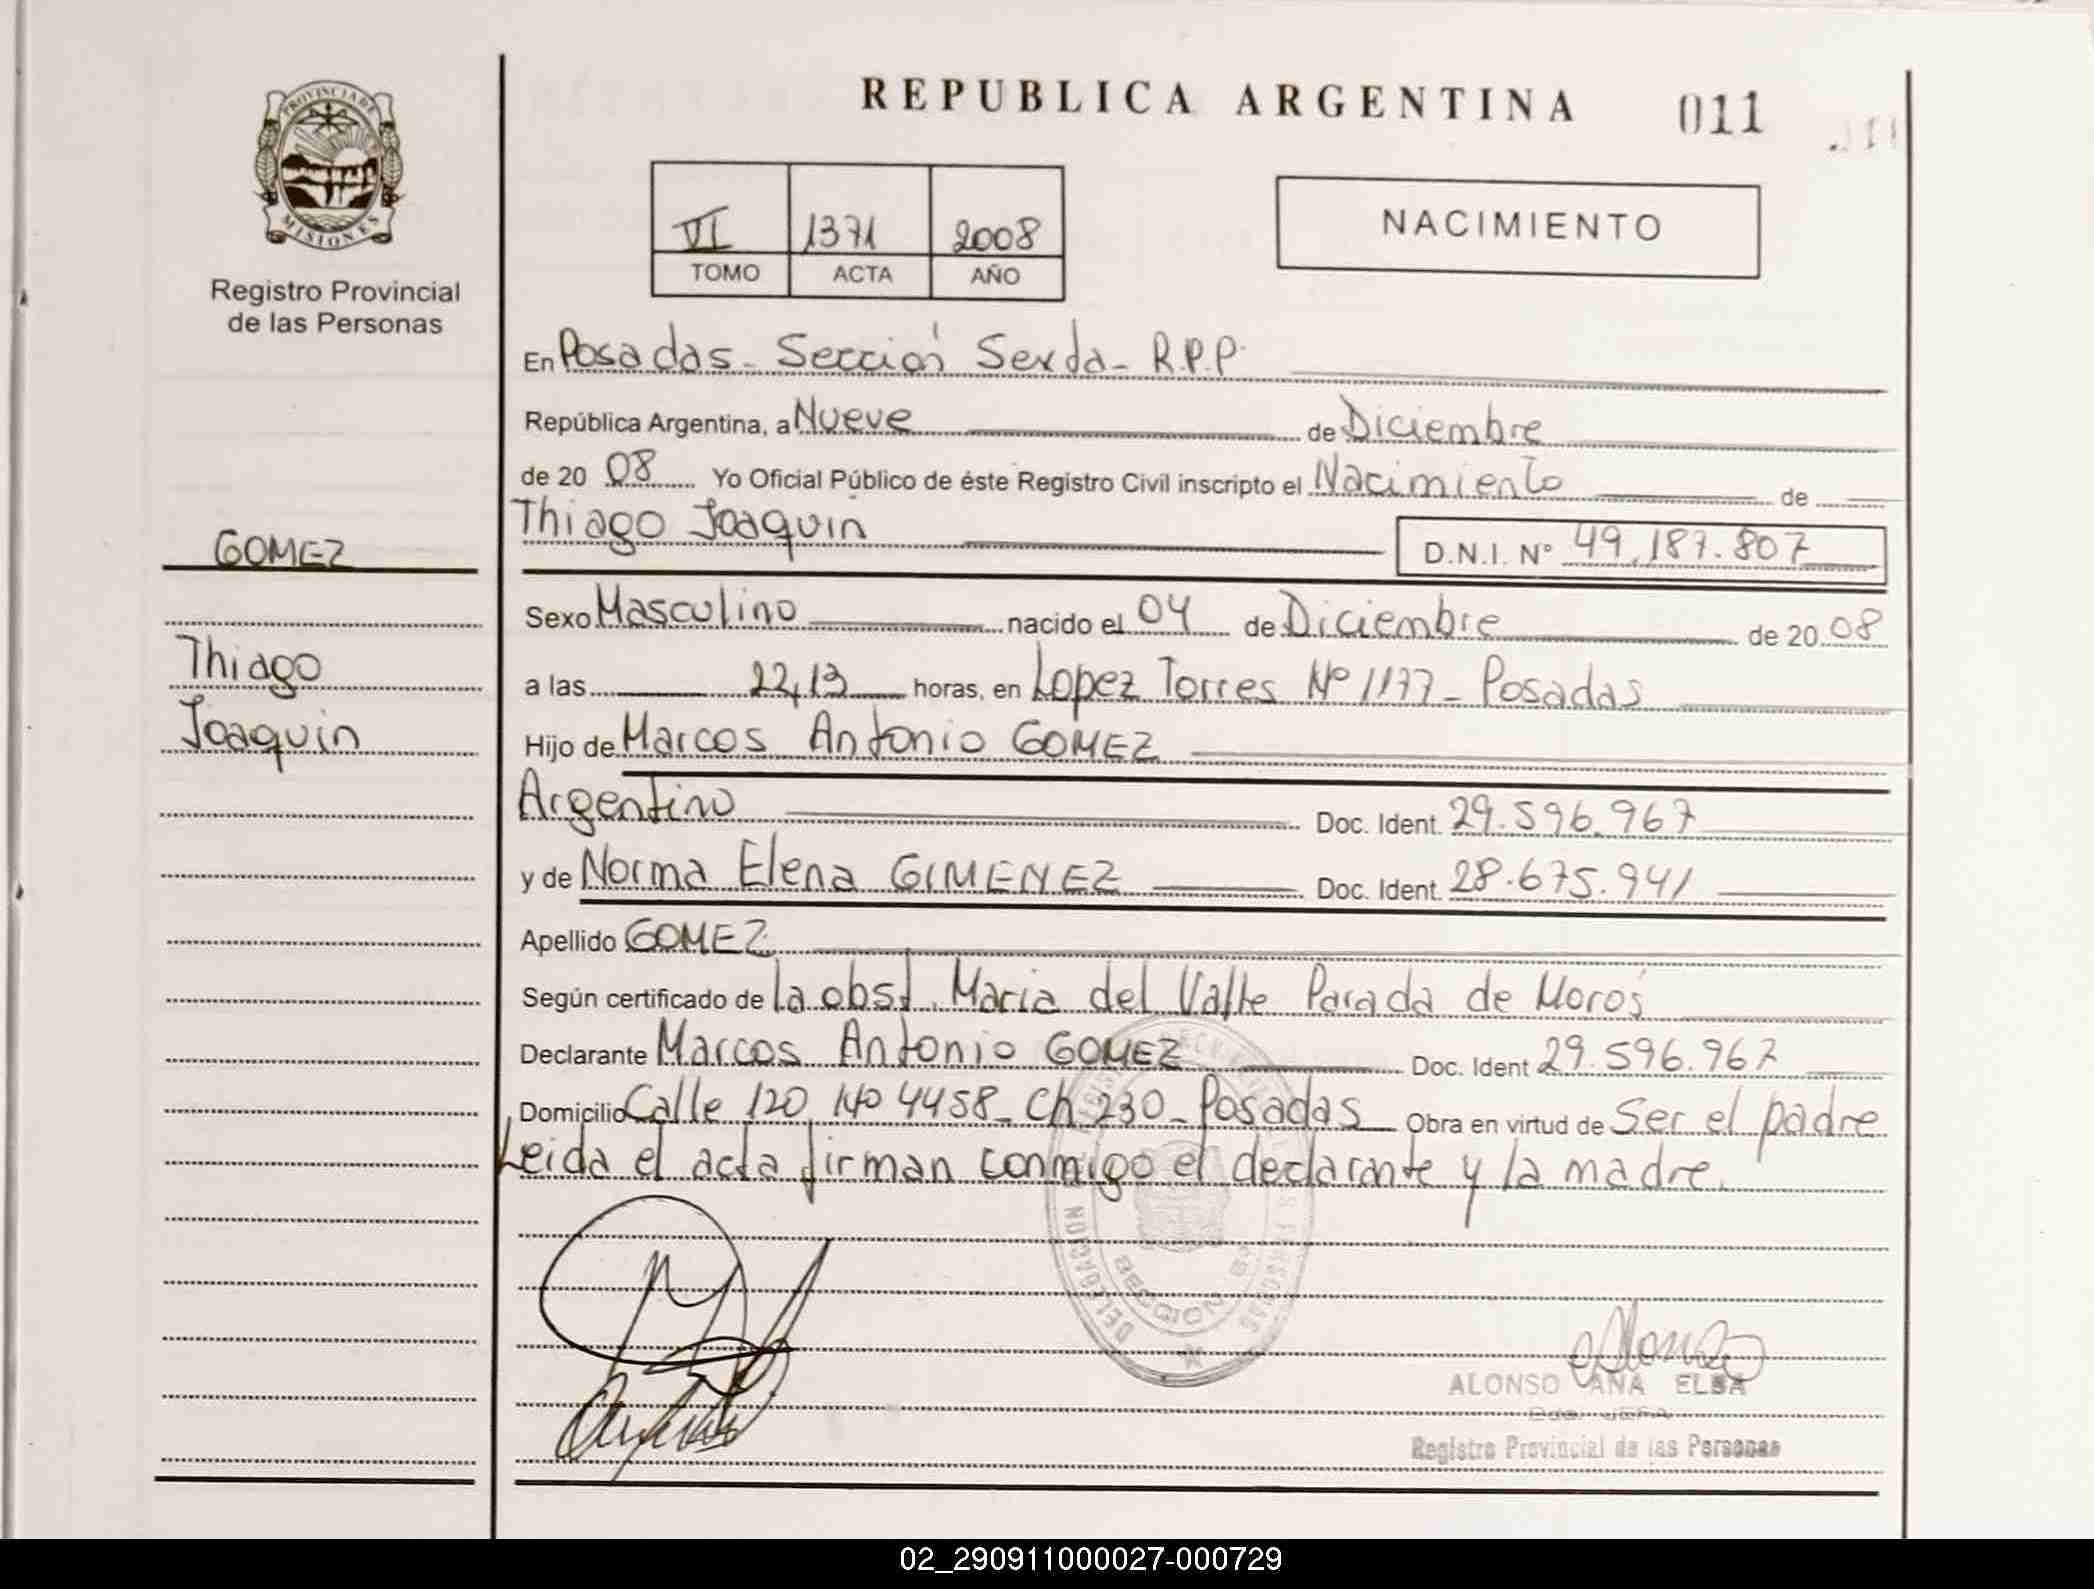 REPUBLICA ARGENTINA
011
PROVINCIA DE
MISIONES
Registro Provincial
de las Personas
VI 1371 2008
TOMO ACTA AÑO
NACIMIENTO
En Posadas - Sección Sexta - R.P.P.
República Argentina, a Nueve de Diciembre
de 20 08 Yo Oficial Público de éste Registro Civil inscripto el Nacimiento de
Thiago Joaquin D.N.I. N° 49.187.807
GOMEZ
Thiago
Joaquin
Sexo Masculino nacido el 04 de Diciembre de 20 08
a las 22,13 horas, en Lopez Torres Nº 1177 - Posadas
Hijo de Marcos Antonio GOMEZ
Argentino Doc. Ident. 29.596.967
y de Norma Elena GIMENEZ Doc. Ident. 28.675.941
Apellido GOMEZ
Según certificado de la obst. Maria del Valle Parada de
Declarante Marcos Antonio GOMEZ Doc. Ident 29.596.967
Domicilio Calle 120 Nº 4458 - Ch. 230 - Posadas Obra en virtud de Ser el padre
Leida el acta firman conmigo el declarante y la madre.
DELEGACION
SECCION 6ª
ALONSO ANA ELSA
Registro Provincial de las Personas
02_290911000027-000729